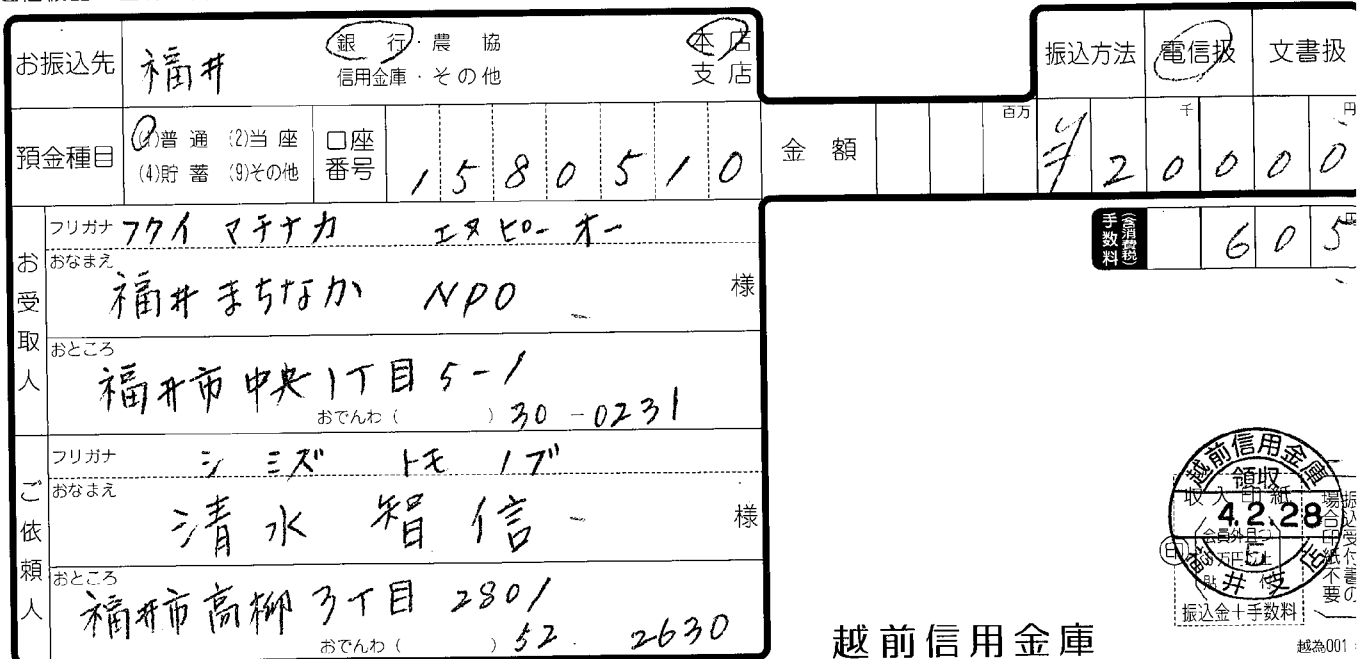 お振込先 福井 銀行・農協 本店
信用金庫・その他 支店
振込方法 電信扱 文書扱
預金種目 (1)普通 (2)当座
(4)貯蓄 (9)その他
口座番号 1580510
金額 百万 千 円
¥20000
手数料 (含消費税) 605 円
お受取人
フリガナ フクイ マチナカ エヌピーオー
おなまえ
福井まちなか NPO 様
おところ
福井市中央1丁目5-1
おでんわ ( ) 30-0231
ご依頼人
フリガナ シミズ トモノブ
おなまえ
清水 智信 様
おところ
福井市高柳3丁目 2801
おでんわ ( ) 52 2630
越前信用金庫
領収
4.2.28
5
収入印紙
振込金+手数料
越前信用金庫
越為001